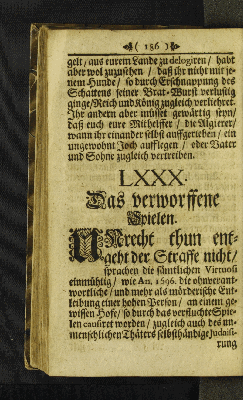 ( 186 )
gelt / aus eurem Lande zu delogiren / habt
aber wol zuzusehen / daß ihr nicht mit je-
nem Hunde / so durch Erschnappung des
Schattens seiner Brat-Wurst verlustig
ginge / Reich und König zugleich verliehret.
Ihr andern aber müsset gewärtig seyn /
daß euch eure Mithelffer / die Algierer /
wann ihr einander selbst auffgerieben / ein
ungewohnt Joch aufflegen / oder Vater
und Sohne zugleich vertreiben.
LXXX.
Das verworffene
Spielen.
UNrecht thun ent-
geht der Straffe nicht /
sprachen die sämtlichen Virtuosi
einmühtig / wie An. 1696. die ohnverant-
wortliche / und mehr als mörderische Ent-
leibung einer hohen Person / an einem ge-
wissen Hofe / so durch das verfluchte Spie-
len causiret worden / zugleich auch des un-
menschlichen Thäters selbsthändige Judaisi-
rung